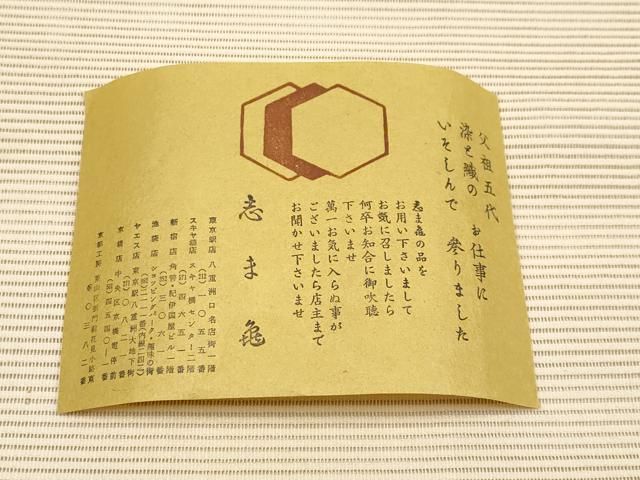 父祖五代
染と織の お仕事に
いそしんで 參りました
志ま亀の品を
お用い下さいまして
お気に召しましたら
何卒お知合に御吹聴
下さいませ
萬一お気に入らぬ事が
ございましたら店主まで
お聞かせ下さいませ
志ま亀
東京駅店 八重洲口名店街一階
スキヤ橋店 スキヤ橋センター二階
新宿店 角筈・紀伊国屋ビル一階
池袋店 ショッピングパーク・趣味の街
ヤエス店 東京駅八重洲大地下街
京橋店 中央区京橋電停前
京都工房